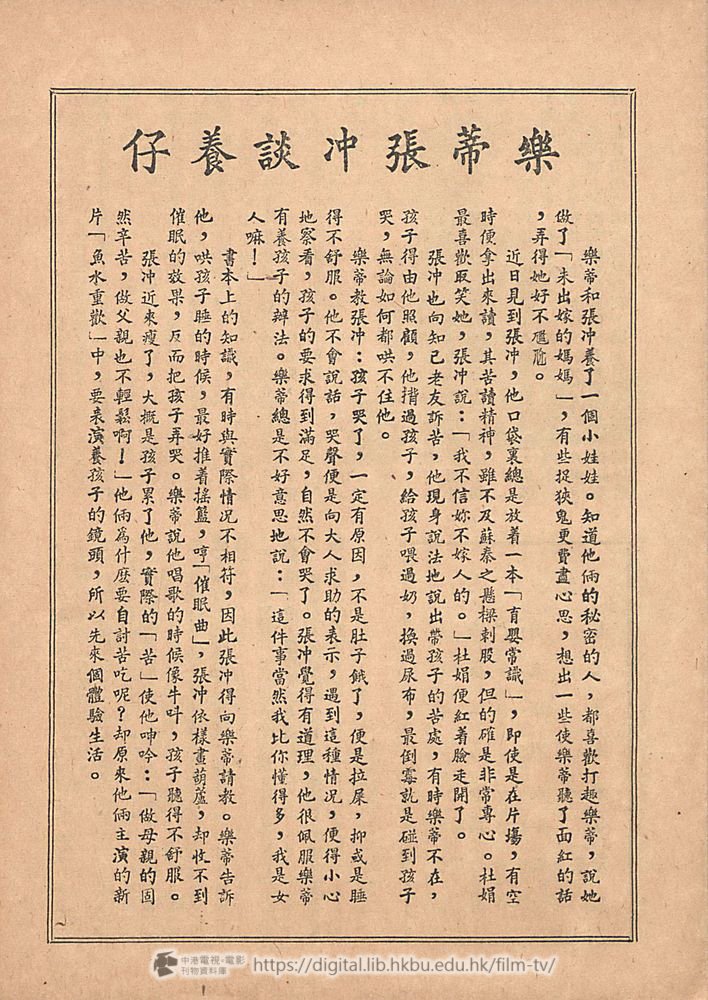 樂蒂張冲談養仔
樂蒂和張冲養了一個小娃娃。知道他倆的秘密的人，都喜歡打趣樂蒂，說她
做了「未出嫁的媽媽」，有些捉狹鬼更費盡心思，想出一些使樂蒂聽了面紅的話
，弄得她好不尷尬。
近日見到張冲，他口袋裏總是放着一本「育嬰常識」，即使是在片塲，有空
時便拿出來讀，其苦讀精神，雖不及蘇秦之懸樑刺股，但的確是非常專心。杜娟
最喜歡取笑她，張冲說：「我不信妳不嫁人的。」杜娟便紅着臉走開了。
張冲也向知己老友訴苦，他現身說法地說出帶孩子的苦處，有時樂蒂不在，
孩子得由他照顧，他揹過孩子，給孩子喂過奶，換過尿布，最倒霉就是碰到孩子
哭，無論如何都哄不住他。
樂蒂教張冲：孩子哭了，一定有原因，不是肚子餓了，便是拉屎，抑或是睡
得不舒服。他不會說話，哭聲便是向大人求助的表示，遇到這種情況，便得小心
地察看，孩子的要求得到滿足，自然不會哭了。張冲覺得有道理，他很佩服樂蒂
有養孩子的辦法。樂蒂總是不好意思地說：「這件事當然我比你懂得多，我是女
人嘛！」
書本上的知識，有時與實際情況不相符，因此張冲得向樂蒂請教。樂蒂告訴
他，哄孩子睡的時候，最好推着搖籃，哼「催眠曲」，張冲依樣畫葫蘆，却收不到
催眠的效果，反而把孩子弄哭。樂蒂說他唱歌的時候像牛叫，孩子聽得不舒服。
張冲近來瘦了，大概是孩子累了他，實際的「苦」使他呻吟：「做母親的固
然辛苦，做父親也不輕鬆啊！」他倆爲什麽要自討苦吃呢？却原來他倆主演的新
片「魚水重歡」中，要表演養孩子的鏡頭，所以先來個體驗生活。
中港電視·電影
刊物資料庫
https://digital.lib.hkbu.edu.hk/film-tv/